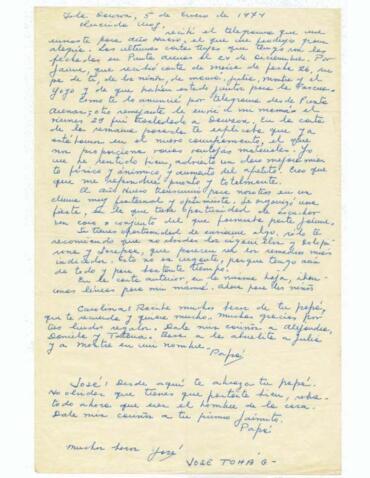 Isla Dawson, 5 de Enero de 1974
recibí el telegrama que me
para año nuevo, el que me produjo gran
alegría. Las últimas cartas tuyas que tengo son las
fechadas en Punta Arenas el 24 de Diciembre. Por
Jaime, que recibió carta de de fecha 26, su
pe de ti, de los niños, de mamá, Julia, y el
y de que habían estado juntos para la Pascua.
Como te lo anuncié por telegrama desde Punta
Arenas, otro semejante le envié a mi mamá el
viernes 29 fui trasladado a Dawson. En la carta
de la semana pasada te explicaba que ya
estábamos en el nuevo campamento, el que
nos proporciona varias ventajas materiales. Yo
me he sentido bien, advierto un claro mejoramien
to físico y anímico, y aumento del apetito. Creo que
que me repondré pronto y totalmente.
El Año Nuevo transcurrió para nosotros en un
clima muy fraternal y optimista. Se organizó una
fiesta, en la que tuve oportunidad de escuchar
un coro y conjunto del que formaba parte Jaime.
Si tienes oportunidad de enviarme algo, sólo te
recomiendo que no olvides los
y que parecen ser los remedios más
indicados. Esto no es urgente, porque tengo aún
de todo y para bastante tiempo.
En la carta anterior, en la misma hoja,
unas líneas para mi mamá. Ahora para los niños
Carolina: Recibe muchos besos de tu papá,
que te recuerda y quiere mucho. Muchas gracias por
tus lindos regalos. Dale mis cariños a Alejandra,
Daniela y Besa a la abuelita a Julia
y a en mi nombre.
Papá
José: Desde aquí te abraza tu papá.
No olvides que tienes que portarte bien, sobre
todo ahora que eres el hombre de la casa.
Dale mis cariños a tu primo Jaimito.
Papá
Muchos besos José
JOSE TOHÁ G-